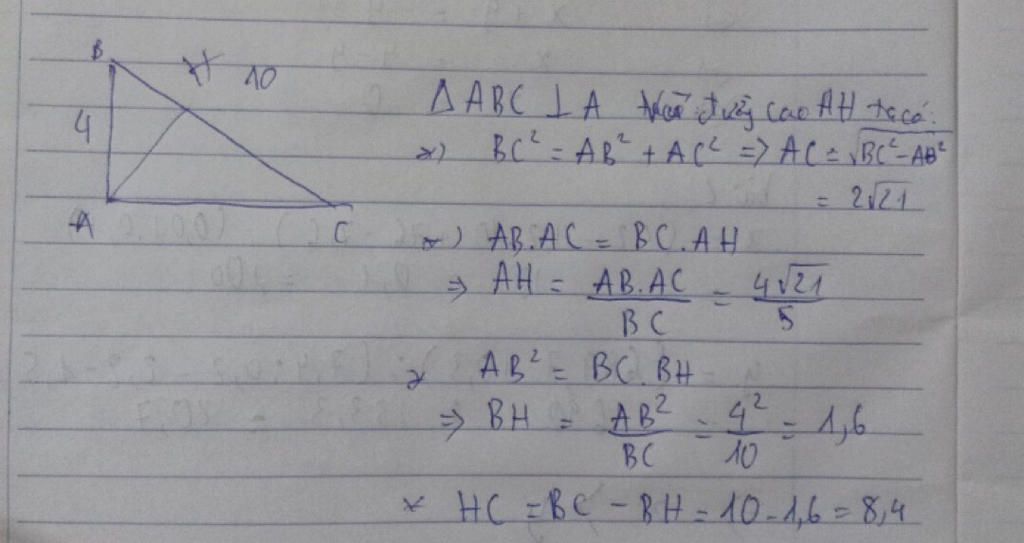 B
H
10
4
A
C
ΔABC ⊥ A đường cao AH ta có:
*) BC² = AB² + AC² => AC = √BC² - AB²
= 2√21
*) AB.AC = BC.AH
=> AH = AB.AC / BC = 4√21 / 5
* AB² = BC.BH
=> BH = AB² / BC = 4² / 10 = 1,6
* HC = BC - BH = 10 - 1,6 = 8,4